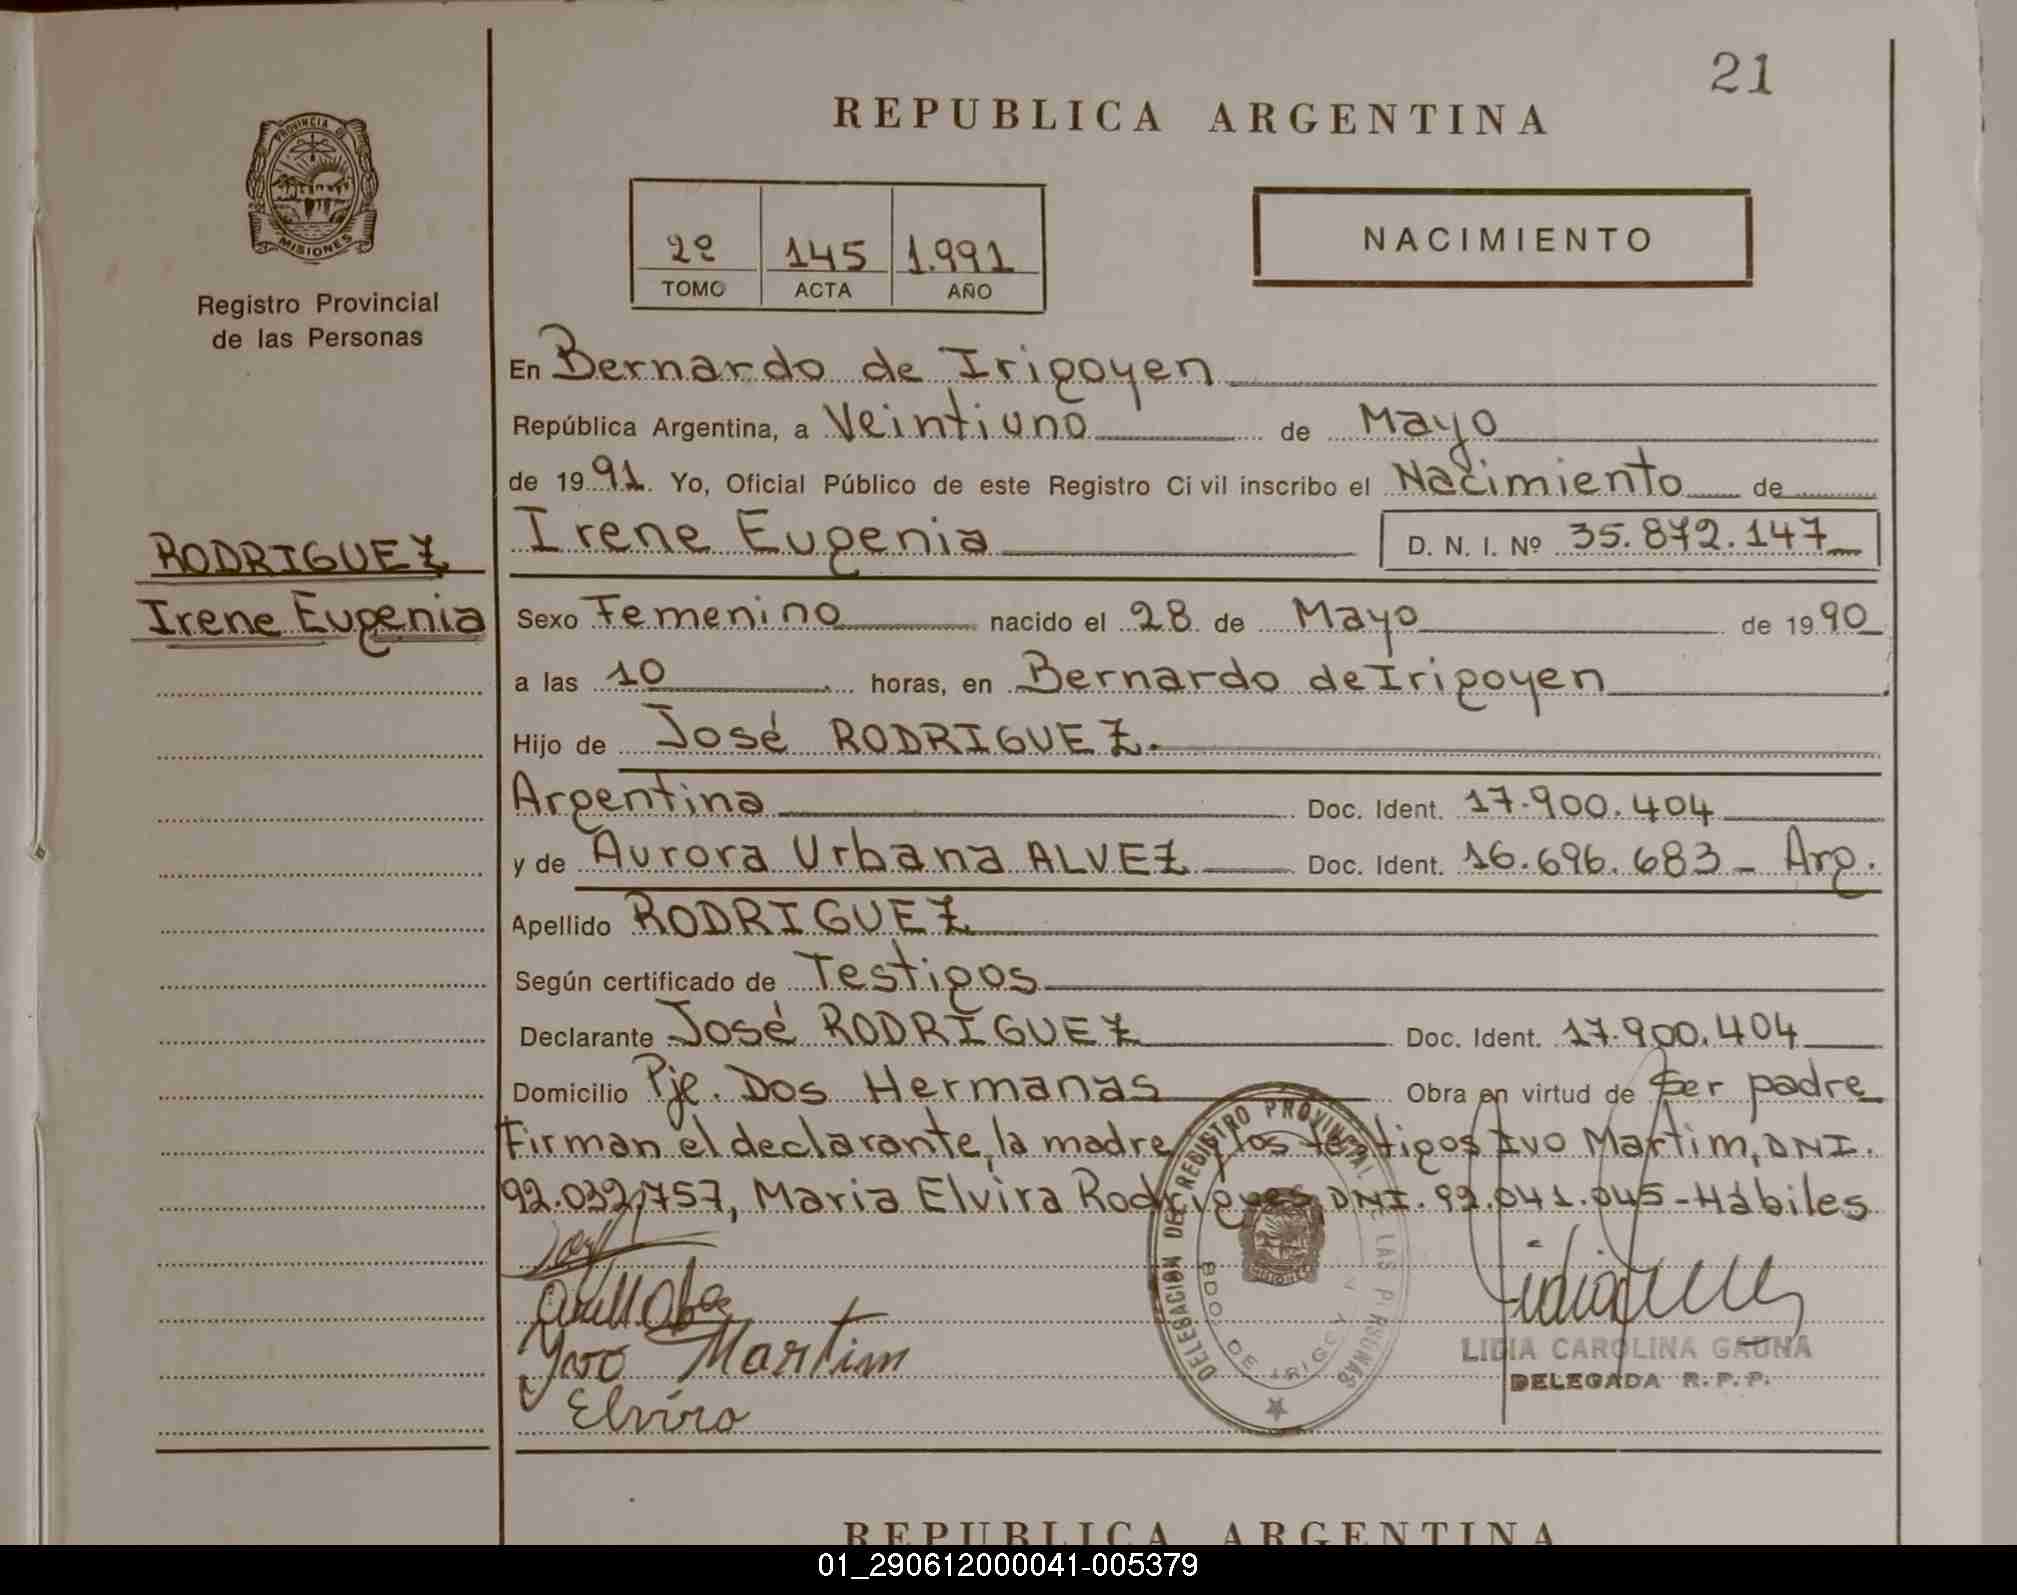 21
REPUBLICA ARGENTINA
PROVINCIA DE
MISIONES
Registro Provincial
de las Personas
2º 145 1.991
TOMO ACTA AÑO
NACIMIENTO
En Bernardo de Irigoyen
República Argentina, a Veintiuno de Mayo
de 1991. Yo, Oficial Público de este Registro Civil inscribo el Nacimiento de
Irene Eugenia D. N. I. Nº 35.872.147
RODRIGUEZ
Irene Eugenia
Sexo Femenino nacido el 28 de Mayo de 1990
a las 10 horas, en Bernardo de Irigoyen
Hijo de José RODRIGUEZ.
Argentina Doc. Ident. 17.900.404
y de Aurora Urbana ALVEZ Doc. Ident. 16.696.683 - Arg.
Apellido RODRIGUEZ
Según certificado de Testigos
Declarante José RODRIGUEZ Doc. Ident. 17.900.404
Domicilio Pje. Dos Hermanas Obra en virtud de Ser padre
Firman el declarante, la madre y los testigos Ivo Martim, DNI.
92.032.757, Maria Elvira Rodrigues DNI. 92.041.045-Hábiles
DELEGACION DEL REGISTRO PROVINCIAL DE LAS PERSONAS
BDO. DE IRIGOYEN
MISIONES
Ivo Martim
Elvira
LIDIA CAROLINA GAUNA
DELEGADA R.P.P.
REPUBLICA ARGENTINA
01_290612000041-005379